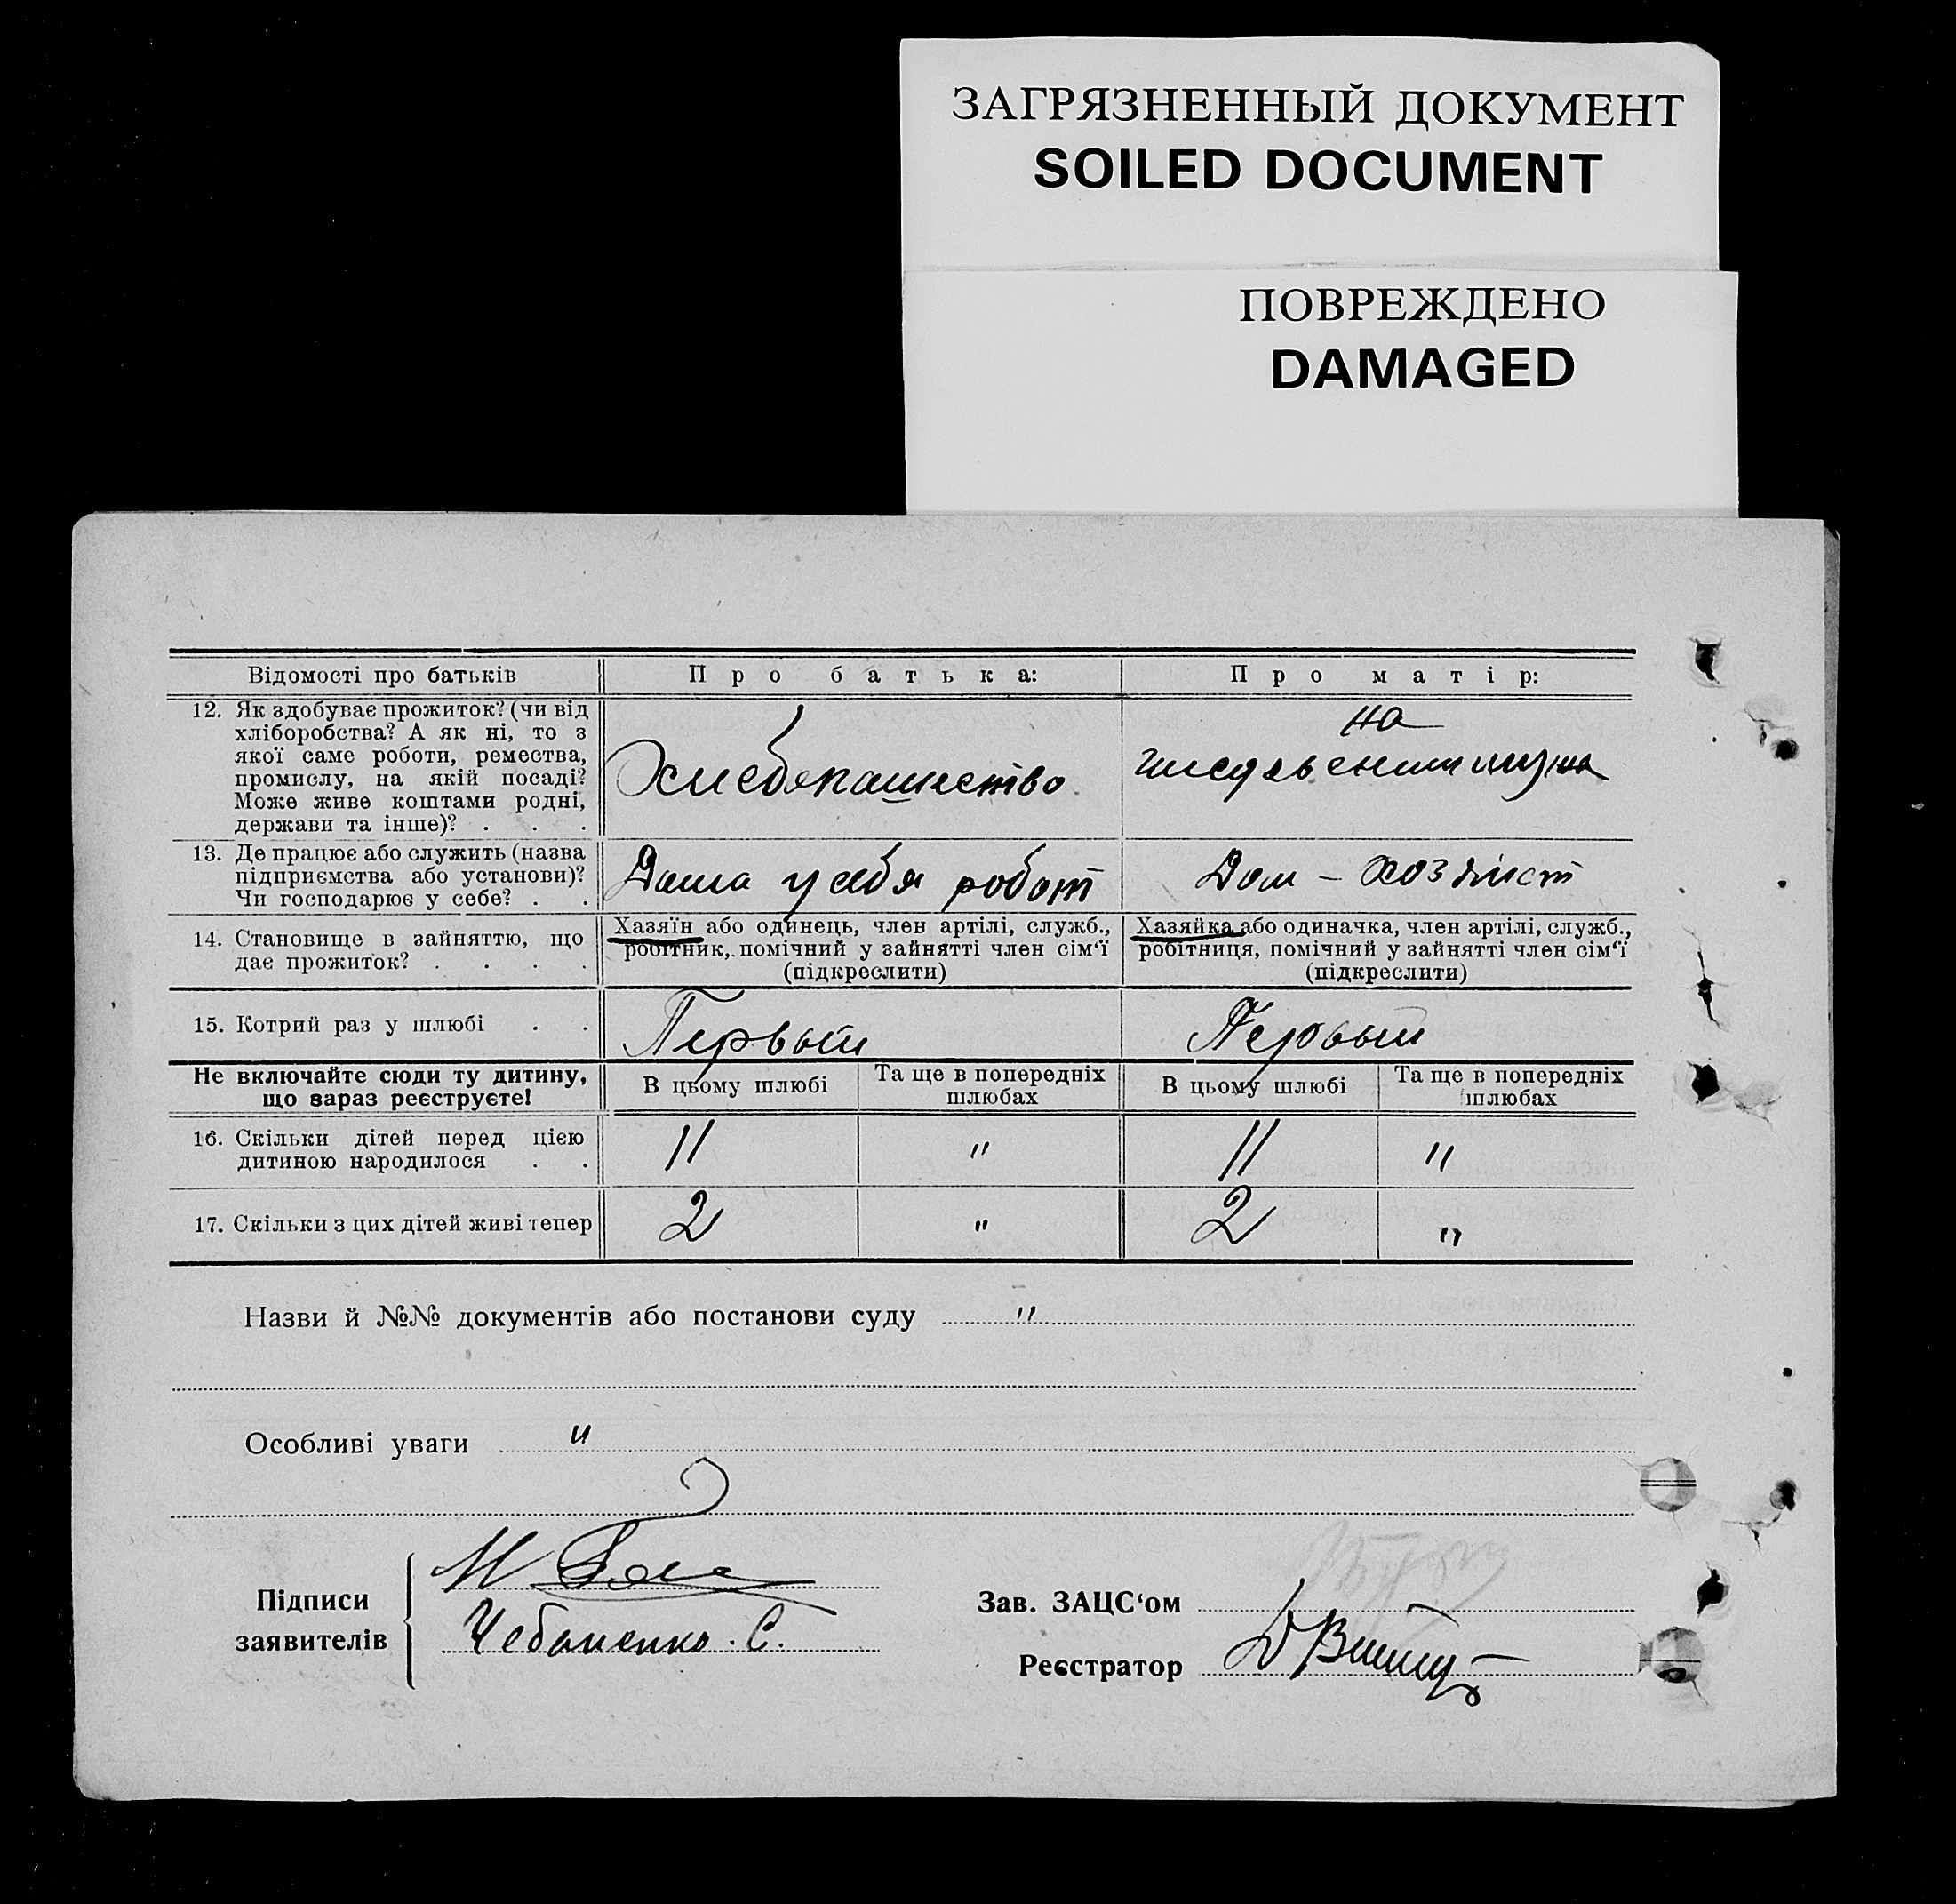 ЗАГРЯЗНЕННЫЙ ДОКУМЕНТ
SOILED DOCUMENT
ПОВРЕЖДЕНО
DAMAGED
Відомості про батьків
Про батька:
Про матір:
12. Як здобуває прожиток? (чи від
хліборобства? А як ні, то з
якої саме роботи, ремества,
промислу, на якій посаді?
Може живе коштами родні,
держави та інше)? . . .
на
13. Де працює або служить (назва
підприємства або установи)?
Чи господарює у себе? . .
Дома у себя работ
Дом –
14. Становище в зайняттю, що
дає прожиток? . . . .
Хазяїн або одинець, член артілі, служб.,
робітник, помічний у зайнятті член сім'ї
(підкреслити)
Хазяйка або одиначка, член артілі, служб.,
робітниця, помічний у зайнятті член сім'ї
(підкреслити)
15. Котрий раз у шлюбі . .
Первый
Первый
Не включайте сюди ту дитину,
що вараз реєструєте!
В цьому шлюбі
Та ще в попередніх
шлюбах
В цьому шлюбі
Та ще в попередніх
шлюбах
16. Скільки дітей перед цією
дитиною народилося . .
11 " 11 "
17. Скільки з цих дітей живі тепер
2 " 2 "
Назви й №№ документів або постанови суду "
Особливі уваги "
Підписи
заявителів
Чебаненко. С.
Зав. ЗАЦС'ом
Реєстратор